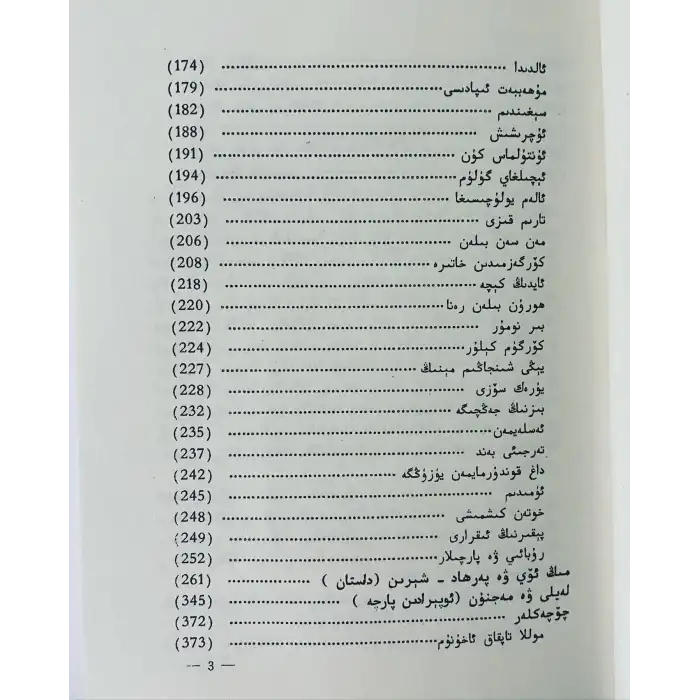 ئالدىدا ······ (174)
مۇھەببەت ئىپادىسى ······ (179)
سېغىندىم ······ (182)
ئۇچرىشىش ······ (188)
ئۇنتۇلماس كۈن ······ (191)
ئېچىلغاي گۈلۈم ······ (194)
ئالەم يولۇچىسىغا ······ (196)
تارىم قىزى ······ (203)
مەن سەن بىلەن ······ (206)
كۆرگەزمىدىن خاتىرە ······ (208)
ئايدىڭ كېچە ······ (218)
ھورۇن بىلەن رەنا ······ (220)
بىر نومۇر ······ (222)
كۆرگۈم كېلۇر ······ (224)
يېڭى شىنجاڭىم مېنىڭ ······ (227)
يۈرەك سۆزى ······ (228)
بىزنىڭ جەڭچىگە ······ (232)
ئەسلەيمەن ······ (235)
تەرجىئى بەند ······ (237)
داغ قوندۇرمايمەن يۈزۈڭگە ······ (242)
ئۈمىدىم ······ (245)
خوتەن كىشمىشى ······ (248)
پېقىرنىڭ ئىقرارى ······ (249)
رۇبائىي ۋە پارچىلار ······ (252)
مىڭ ئۆي ۋە پەرھاد - شېرىن (داستان ) ······ (261)
لەيلى ۋە مەجنۇن (ئوپېرادىن پارچە ) ······ (345)
چۆچەكلەر ······ (372)
موللا تاپقاق ئاخۇنۇم ······ (373)
— 3 —